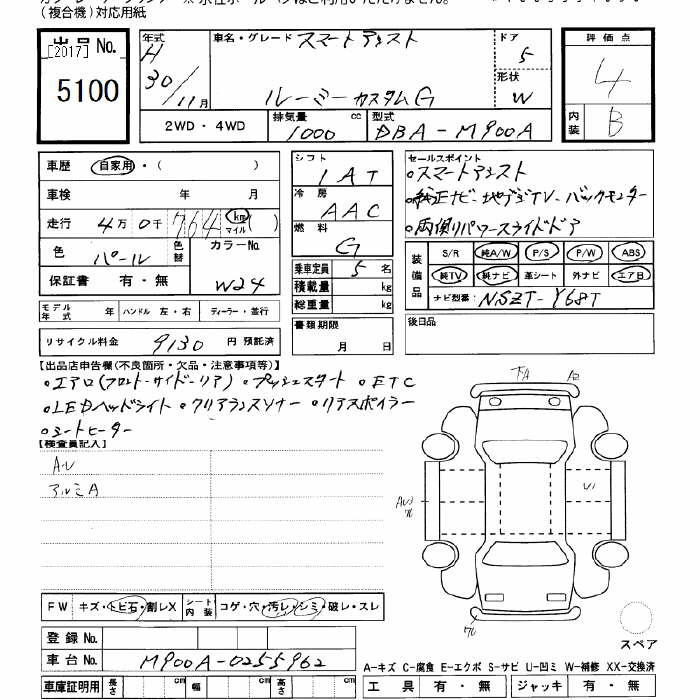 (複合機)対応用紙
出品 No.
[2017]
5100
年式
H
30/11月
車名・グレード スマートアシスト
ルーミー カスタムG
ドア
5
形状
W
評価点
4
内装
B
2WD・4WD
排気量 cc
1000
型式
DBA-M900A
車歴 自家用・( )
車検 年 月
走行 4万 0千 764 km マイル ( )
色 パール 色替
カラーNo.
W24
保証書 有・無
モデル年式 年 ハンドル 左・右 ディーラー・並行
リサイクル料金 9130 円 預託済
シフト
1AT
冷房
AAC
燃料
G
乗車定員 5 名
積載量 kg
総重量 kg
書類期限
月 日
セールスポイント
・スマートアシスト
・純正ナビ・地デジTV・バックモニター
・両側パワースライドドア
装備品
S/R 純A/W P/S P/W ABS
純TV 純ナビ 革シート 外ナビ エアB
ナビ型番: NSZT-Y68T
後日品
【出品店申告欄(不良箇所・欠品・注意事項等)】
・エアロ(フロント・サイド・リア) ・プッシュスタート ・ETC
・LEDヘッドライト ・クリアランスソナー ・リアスポイラー
・シートヒーター
【検査員記入】
AU
アルミA
下A
FW キズ・トビ石・割レX シート内装 コゲ・穴・汚レ・シミ・破レ・スレ
登録 No.
車台 No. M900A-0255962
車庫証明用 長さ cm 幅 cm 高さ cm
スペア
A-キズ C-腐食 E-エクボ S-サビ U-凹ミ W-補修 XX-交換済
工具 有・無 ジャッキ 有・無